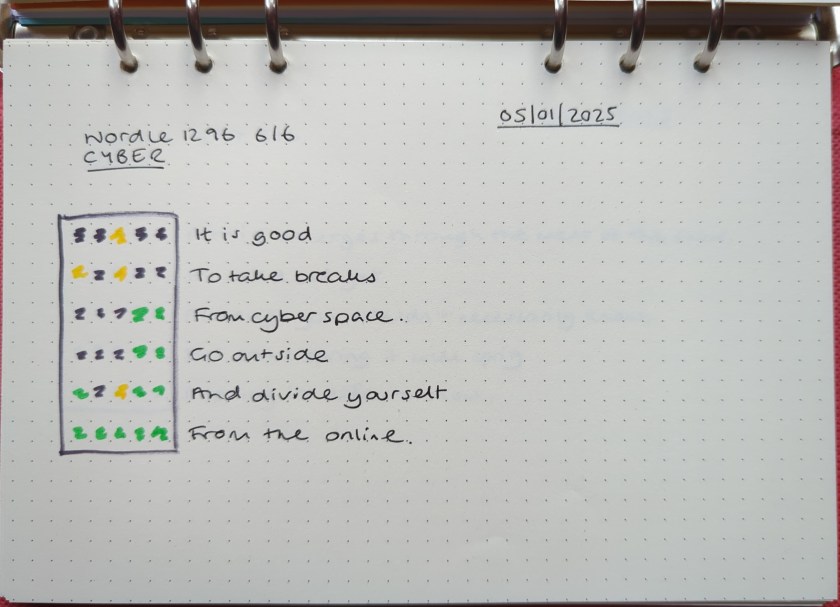 05/01/2025
Wordle 1296 6/6
CYBER
It is good
To take breaks.
From cyber space.
Go outside
And divide yourself
From the online.